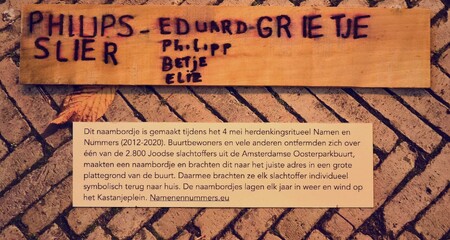 PHILIPS - EDUARD - GRIETJE
SLIER
PHILIPP
BETJE
ELIE
Dit naambordje is gemaakt tijdens het 4 mei herdenkingsritueel Namen en
Nummers (2012-2020). Buurtbewoners en vele anderen ontfermden zich over
één van de 2.800 Joodse slachtoffers uit de Amsterdamse Oosterparkbuurt,
maakten een naambordje en brachten dit naar het juiste adres in een grote
plattegrond van de buurt. Daarmee brachten ze elk slachtoffer individueel
symbolisch terug naar huis. De naambordjes lagen elk jaar in weer en wind op
het Kastanjeplein. Namenennummers.eu